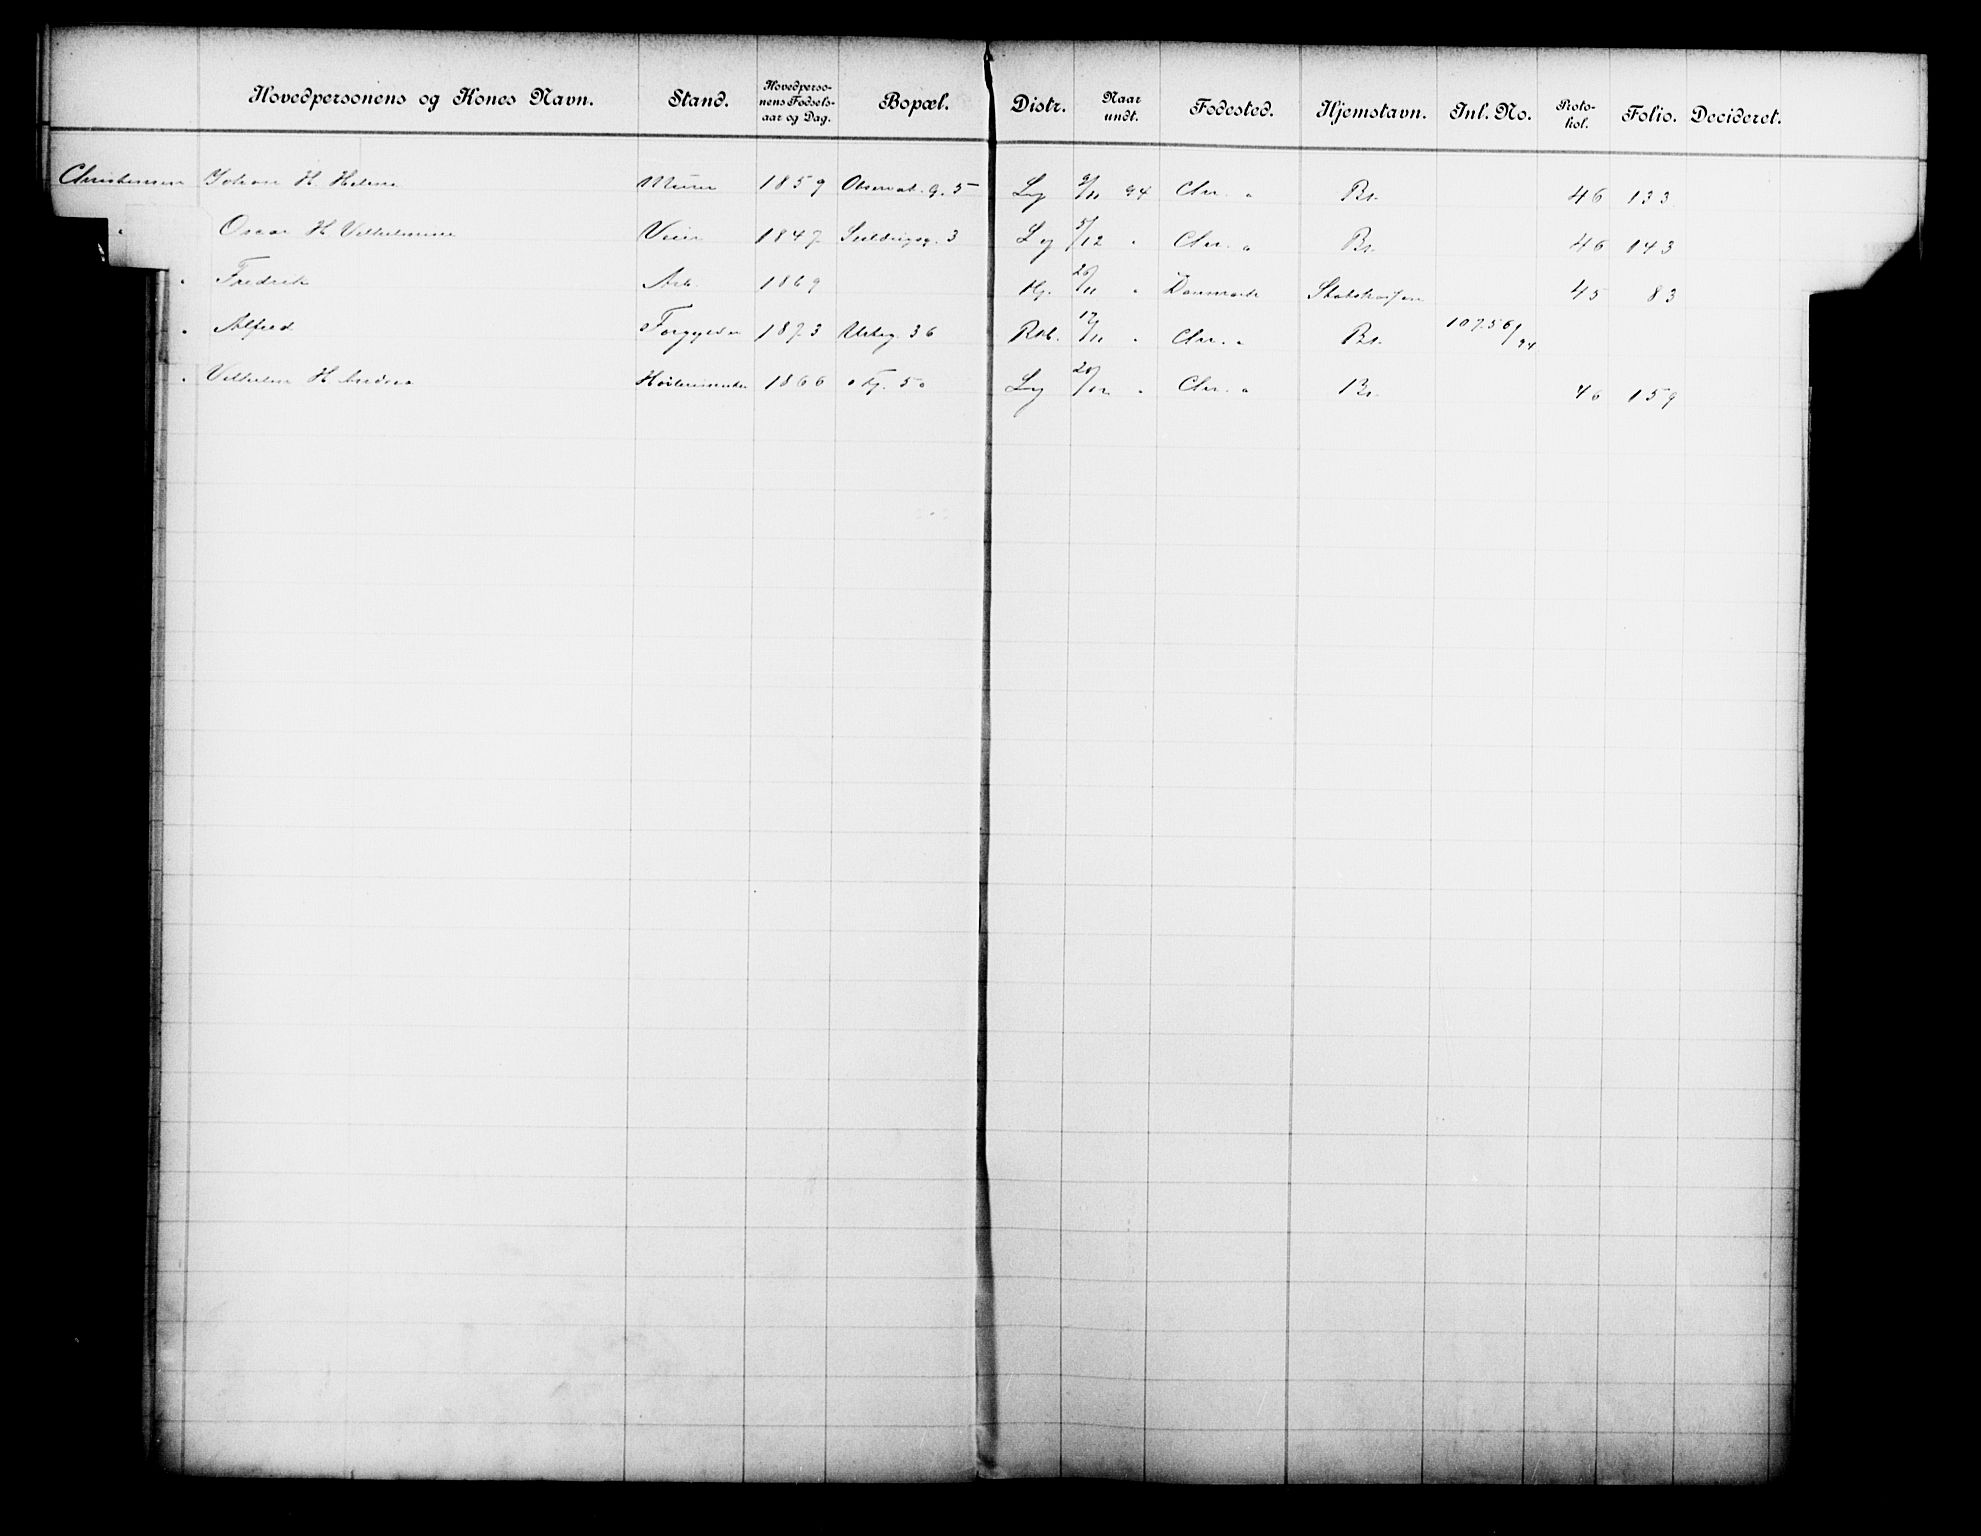 Hovedpersonens og Kones Navn. Stand. Hovedpersonens Fødselsaar og Dag. Bopæl. Distr. Naar undt. Fødested. Hjemstavn. Inl. No. Protokol. Folio. Decideret.
Christensen Johan H. Helene Murer 1859 Observat. g. 5 Lg 9/11 94 Chr. " Bs. 46 133
" Oscar H Vilhelmine 1847 3 Lg 5/12 " Chr. " Bs. 46 143
" Fredrik Arb. 1869 Hg. 26/11 " Danmark 45 83
" Alfred Forgylder 1873 Urteg. 36 Rsb. 17/11 " Chr. " Bs. 10756/94
" Vilhelm H Andrea 1866 50 Lg 20/12 " Chr. " Bs. 46 159